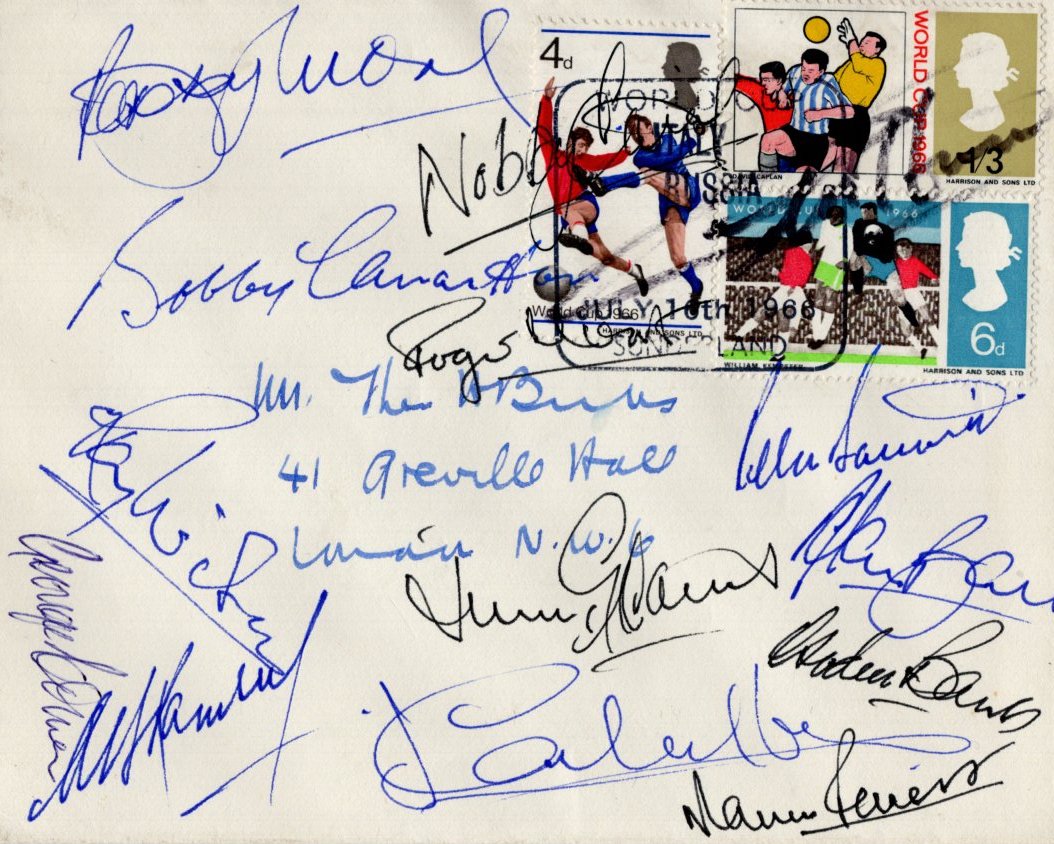 Bobby Moore
Nobby Stiles
4d
WORLD CUP 1966
1/3
DAVID CAPLAN
HARRISON AND SONS LTD
WORLD CUP
ITALY
RUSSIA
JULY 16th 1966
SUNDERLAND
World Cup 1966
HARRISON AND SONS LTD
WORLD CUP 1966
6d
WILLIAM KEMPSTER
HARRISON AND SONS LTD
Bobby Charlton
Roger Hunt
Mr. Theo
41 Greville Hall
London N.W.6
Ray Wilson
Alan Ball
George Cohen
Gordon Banks
Martin Peters